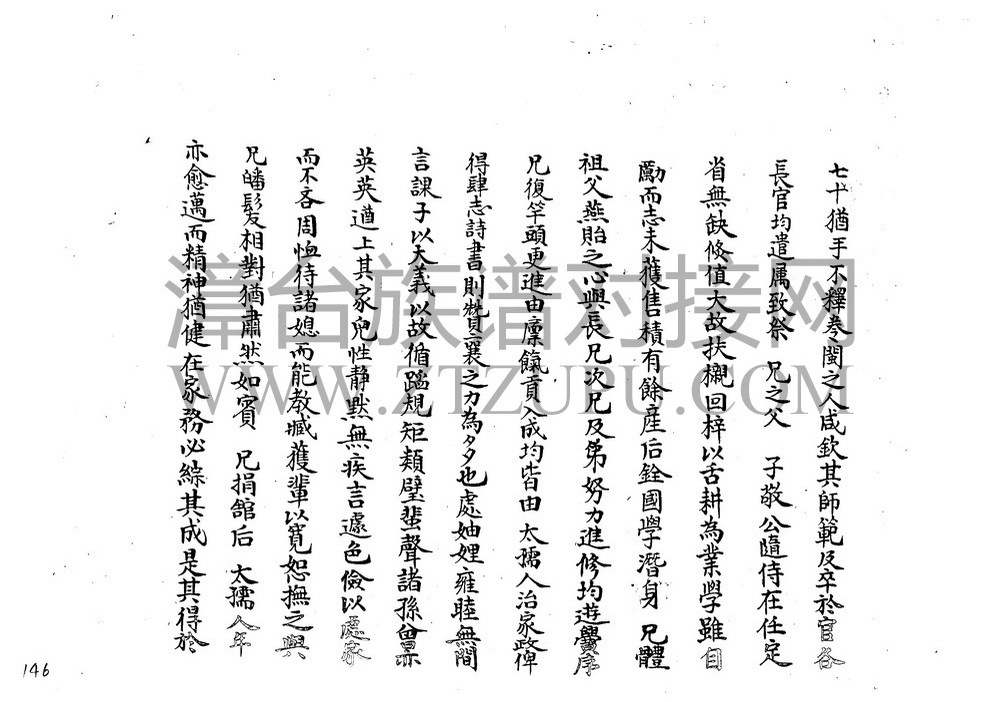 七十猶手不釋卷閩之人咸欽其師範及卒於官各
長官均遣属致祭　兄之父　子敬公隨侍在任定
省無缺倏值大故扶櫬回梓以舌耕為業學雖自
勵而志未獲售積有餘産后銓國學潛身　兄體
祖父燕貽之心與長兄次兄及弟努力進修均遊黌序
兄復竿頭更進由廩餼貢入成均皆由　太孺人治家政俾
得肆志詩書則贊襄之力為多也處妯娌雍睦無間
言課子以大義以故循蹈規矩類璧蜚聲諸孫曾亦
英英遒上其家皃性静默無疾言遽色儉以處家
而不吝周恤待諸媳而能教臧獲輩以寬恕撫之與
兄皤髮相對猶肅然如賓　兄捐舘后　太孺人年
亦愈邁而精神猶健在家務必綜其成是其得於
146
漳台族谱对接网
WWW.ZTZUPU.COM